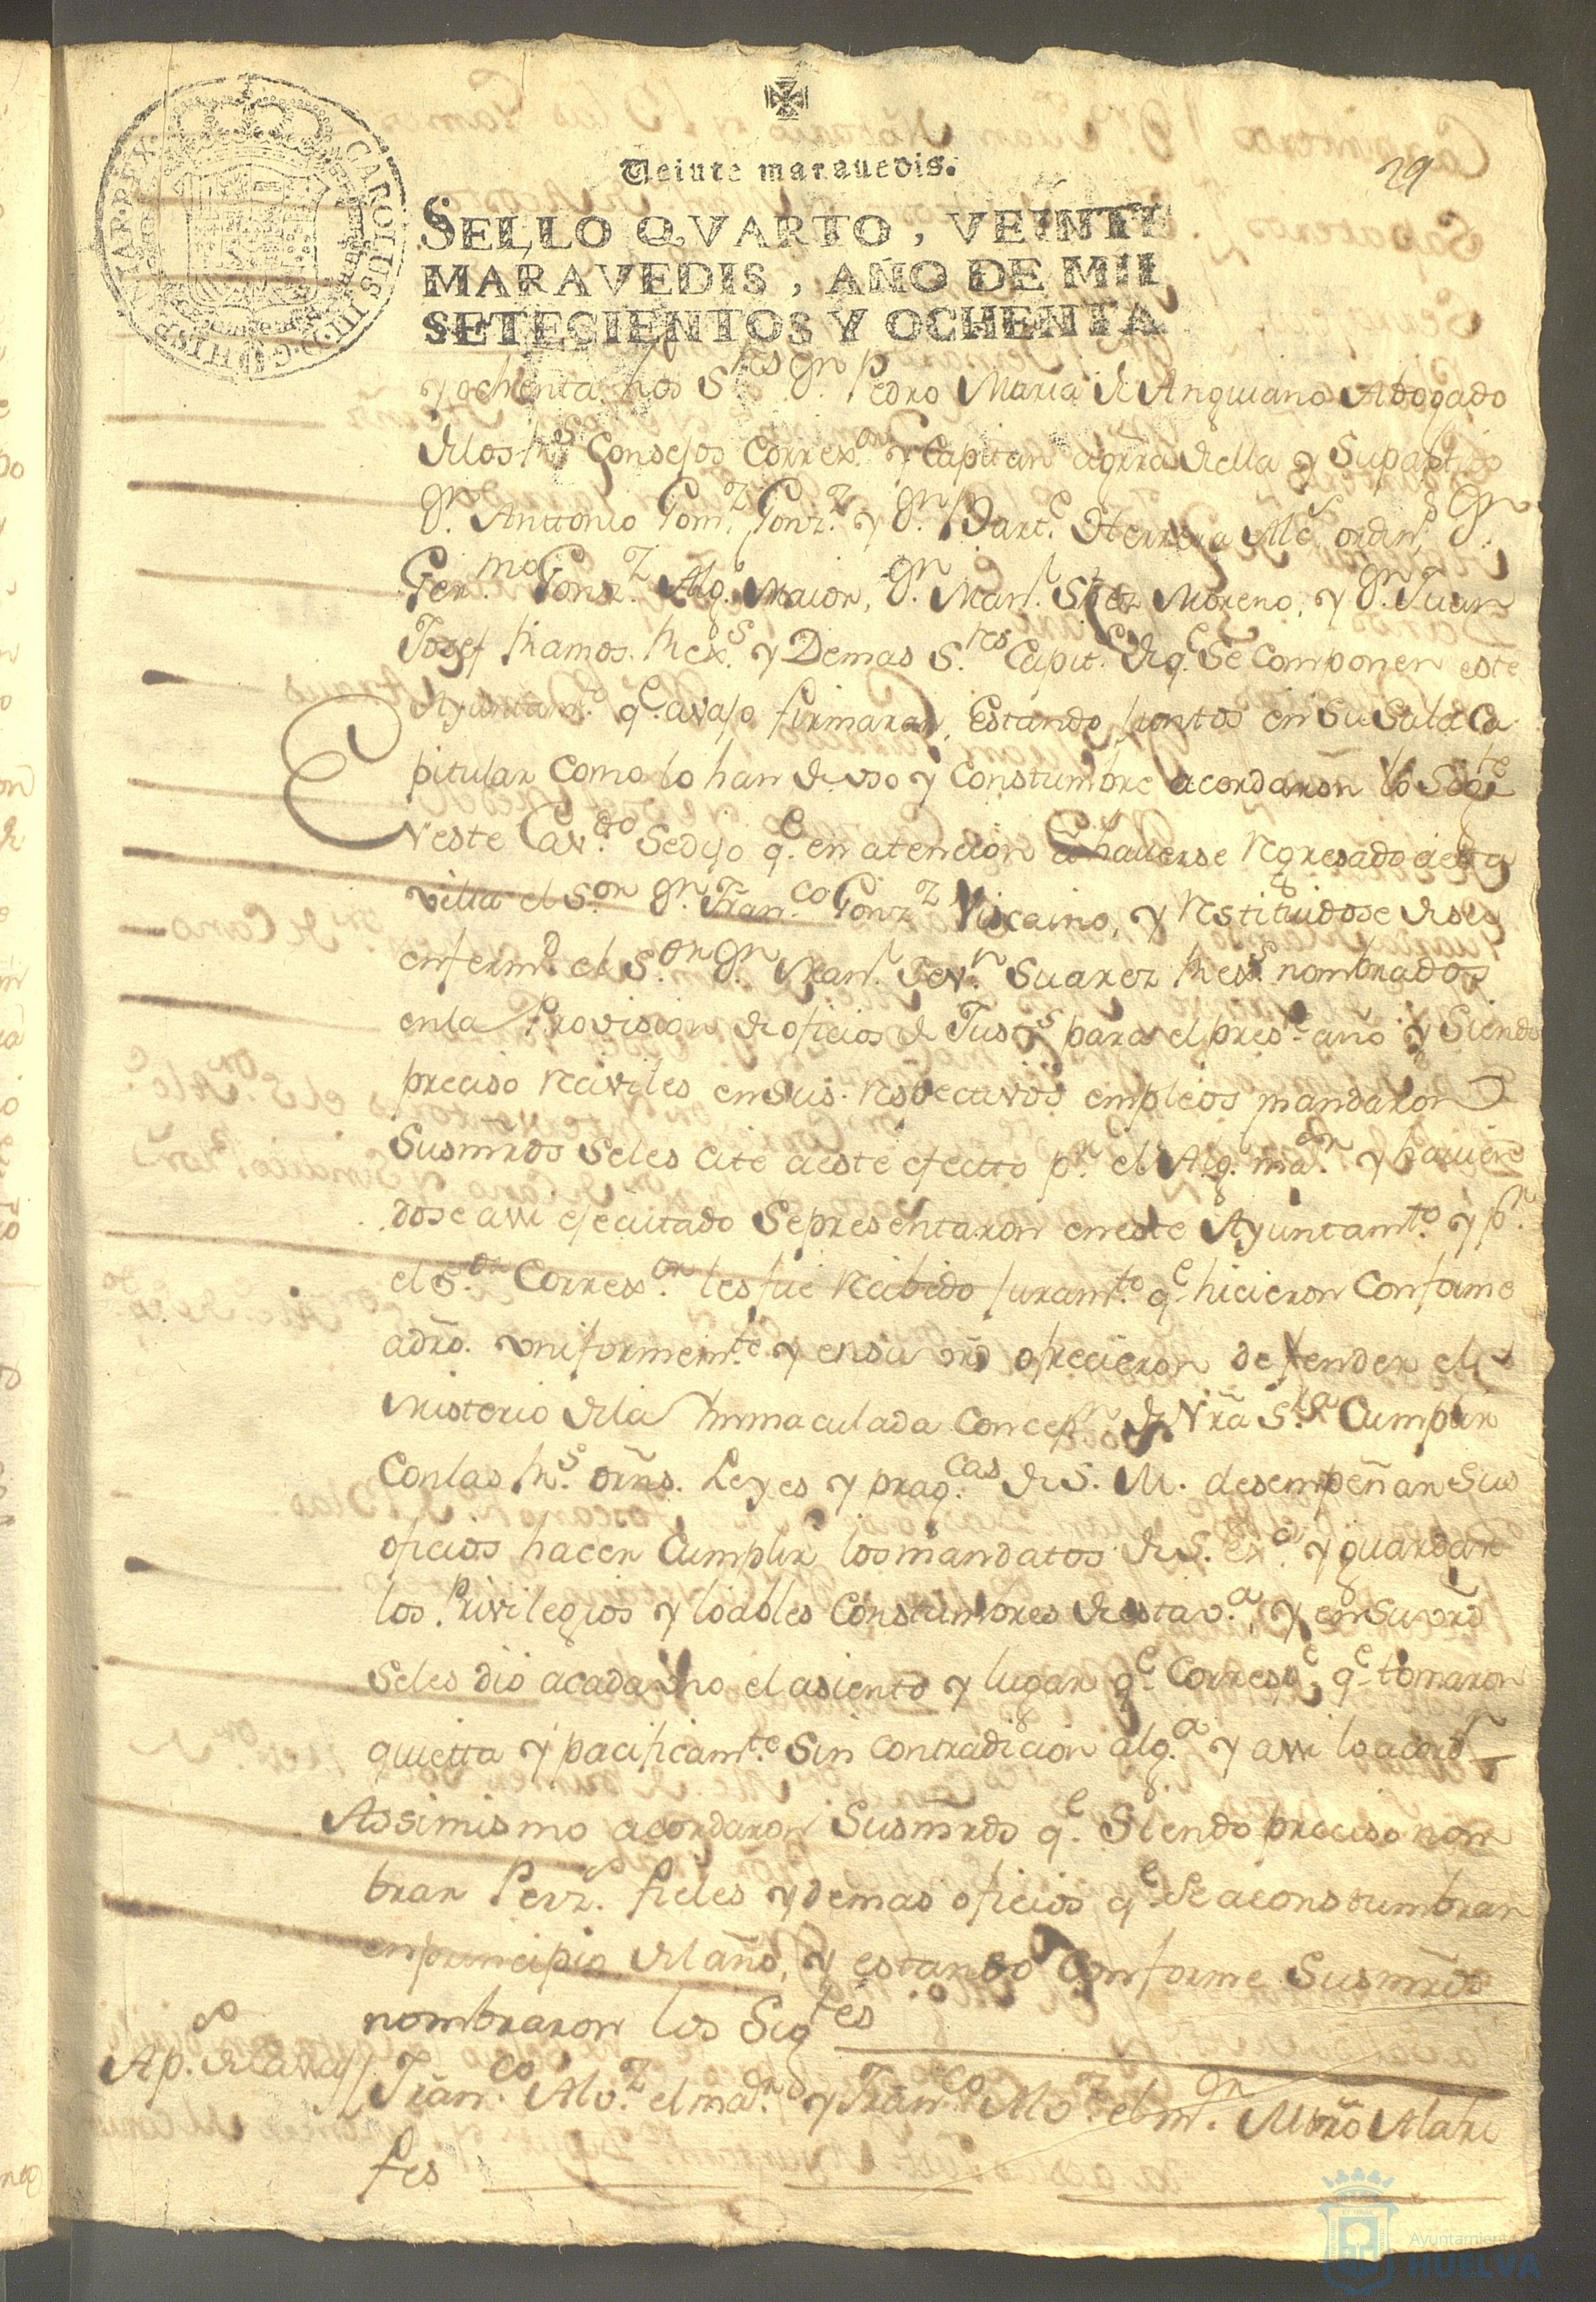 29
Veinte maravedis.
SELLO QVARTO, VEINTE
MARAVEDIS, AÑO DE MIL
SETECIENTOS Y OCHENTA
CAROLUS III D.G. HISP.
y ochenta. los S.res Dn Pedro Maria de Anguiano Abogado
de los Rs Consejos Correx.or y Capitan a grra de ella y su partido
Dn. Anttonio Gom.z Gonz.z y Dn. Bart.e de Herrera Alc.s ordin.s Dn.
Ger.mo Gonz.z Alg. Maior, Dn. Man.l Shez Moreno, y Dn. Juan
Josef Ramos. Rex.s y Demas S.res Capit.s de q.e Se componen este
Ayuntam.to q.e avajo firmaran, Estando juntos en su Sala Ca
pitular como lo han de uso y Constumbre acordaron lo Sigte
En este Cav.do Se dijo q.e en atencion a haverse Regresado a esta
villa el S.or Dn. Fran.co Gonz.z Viscaino, y Restituidose de su
enferm.d el S.or Dn. Man.l Sev.n Suarez Rex.s nombrados
en la Provision de oficios de Just.s para el pres.te año y Siendo
preciso Reciviles en sus Respectivos empleos mandaron
Sus mrds Se les cite a este efecto p.r el Alg. ma.or y havien
dose assi ejecutado Se presentaron en este Ayuntam.to y p.r
el S.or Correx.or les fue Recibido juram.to q.e hicieron Conforme
a dro. uniformem.te y en su vrd ofrecieron defender el
Misterio de la Immaculada Concep.n de Nra S.ra Cumplir
Con las Rs. orns. Leyes y prag.cas de S. M. desempeñar Sus
oficios hacer Cumplir los mandatos de S. Ex.a y guardar
los Privilegios y loables Constumbres de esta v.a, y en Su vrd
Se les dio a cada uno el asiento y lugar q.e Corresp.e q.e tomaron
quietta y pacificam.te Sin contradicion alg.a y assi lo acord.n
Assimismo acordaron Sus mrds q.e Siendo preciso nom
brar Perz.s fieles y demas oficios q.e Se aconstumbran
en principio del año, y estando Conforme Sus mrds
nombraron los Sigtes
Ap.
Fran.co Alv.z el ma.or y Fran.co Alv.z el m.or Mtro Alari
fes
Ayuntamiento
HUELVA